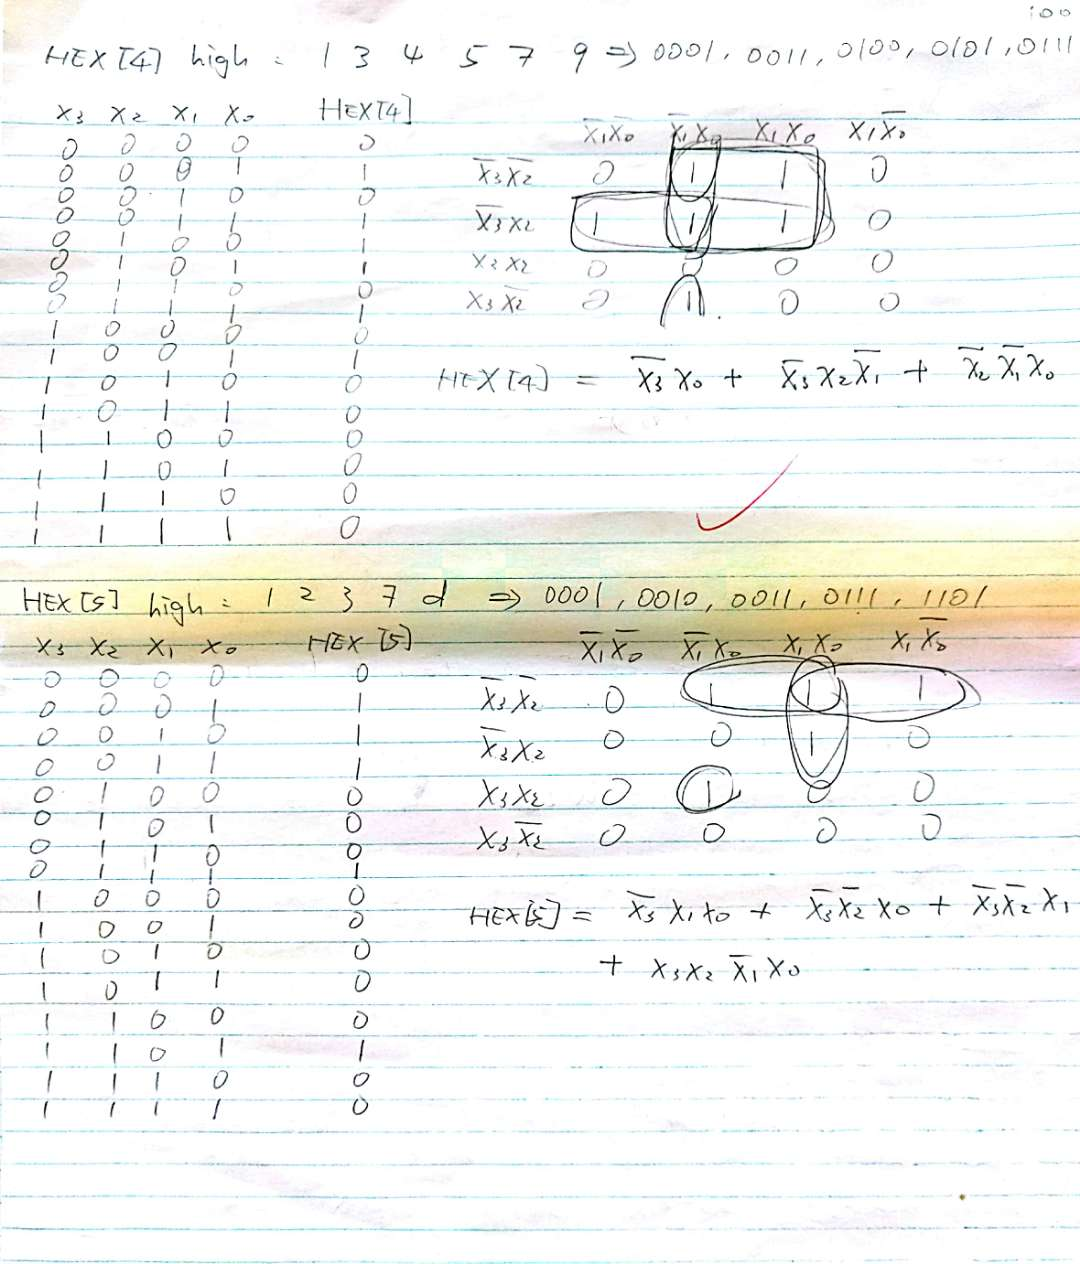 100
HEX[4] high : 1 3 4 5 7 9 ⇒ 0001, 0011, 0100, 0101, 0111
X₃ X₂ X₁ X₀ HEX[4]
0 0 0 0 0
0 0 0 1 1
0 0 1 0 0
0 0 1 1 1
0 1 0 0 1
0 1 0 1 1
0 1 1 0 0
0 1 1 1 1
1 0 0 0 0
1 0 0 1 1
1 0 1 0 0
1 0 1 1 0
1 1 0 0 0
1 1 0 1 0
1 1 1 0 0
1 1 1 1 0
X̅₁X̅₀ X̅₁X₀ X₁X₀ X₁X̅₀
X̅₃X̅₂ 0 1 1 0
X̅₃X₂ 1 1 1 0
X₃X₂ 0 0 0 0
X₃X̅₂ 0 1 0 0
HEX[4] = X̅₃X₀ + X̅₃X₂X̅₁ + X̅₂X̅₁X₀
HEX[5] high : 1 2 3 7 d ⇒ 0001, 0010, 0011, 0111, 1101
X₃ X₂ X₁ X₀ HEX[5]
0 0 0 0 0
0 0 0 1 1
0 0 1 0 1
0 0 1 1 1
0 1 0 0 0
0 1 0 1 0
0 1 1 0 0
0 1 1 1 1
1 0 0 0 0
1 0 0 1 0
1 0 1 0 0
1 0 1 1 0
1 1 0 0 0
1 1 0 1 1
1 1 1 0 0
1 1 1 1 0
X̅₁X̅₀ X̅₁X₀ X₁X₀ X₁X̅₀
X̅₃X̅₂ 0 1 1 1
X̅₃X₂ 0 0 1 0
X₃X₂ 0 1 0 0
X₃X̅₂ 0 0 0 0
HEX[5] = X̅₃X₁X₀ + X̅₃X̅₂X₀ + X̅₃X̅₂X₁
+ X₃X₂X̅₁X₀